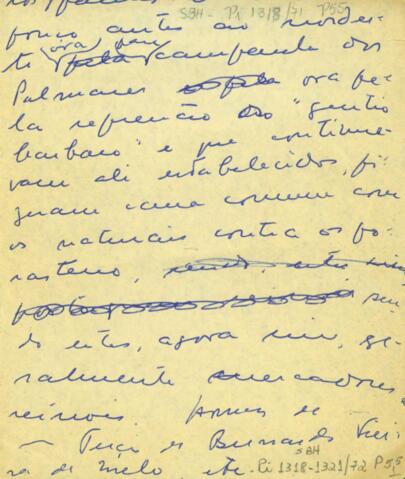 SBH - Pi 1318/71 P55
pouco antes ao nordes-
te (ora para campanha dos
Palmares ora pe-
la repressão do "gentio
barbaro" e que continua-
vam ali estabelecidos, fi-
zeram causa commum com
os naturais contra os fo-
rasteiros, sen-
do estes, agora sim, ge-
ralmente mercadores
reinois. Homens do
Terço de Bernardo Viei-
ra de Melo, etc.
SBH
Pi 1318-1321/72 P55